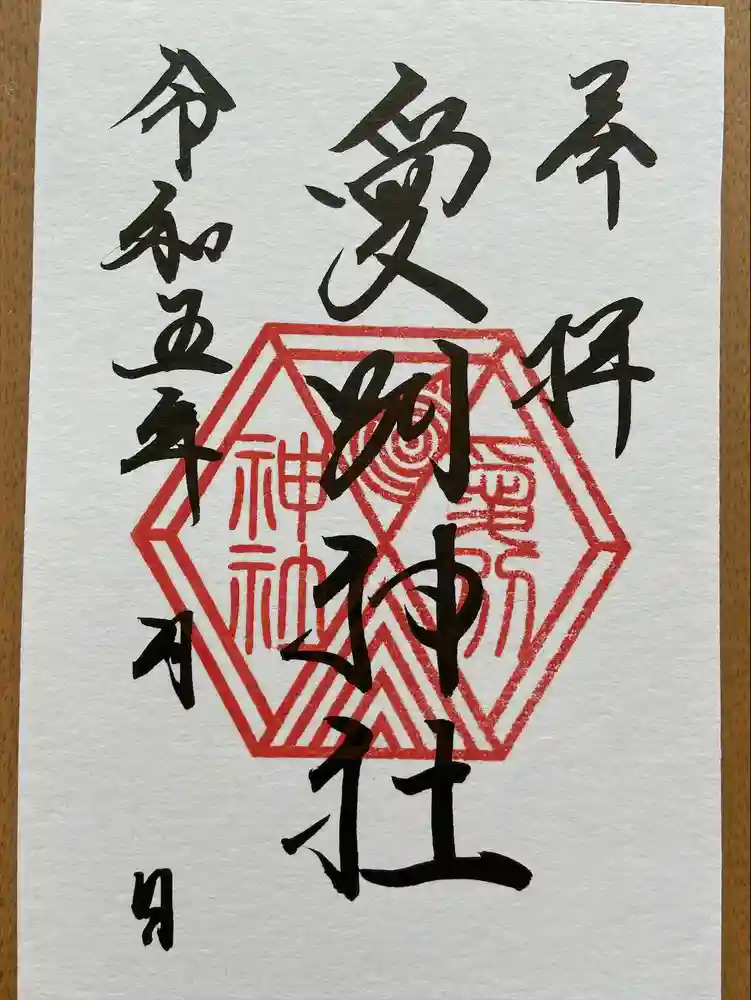 奉拝
愛別神社
愛別
神社
令和五年 月 日